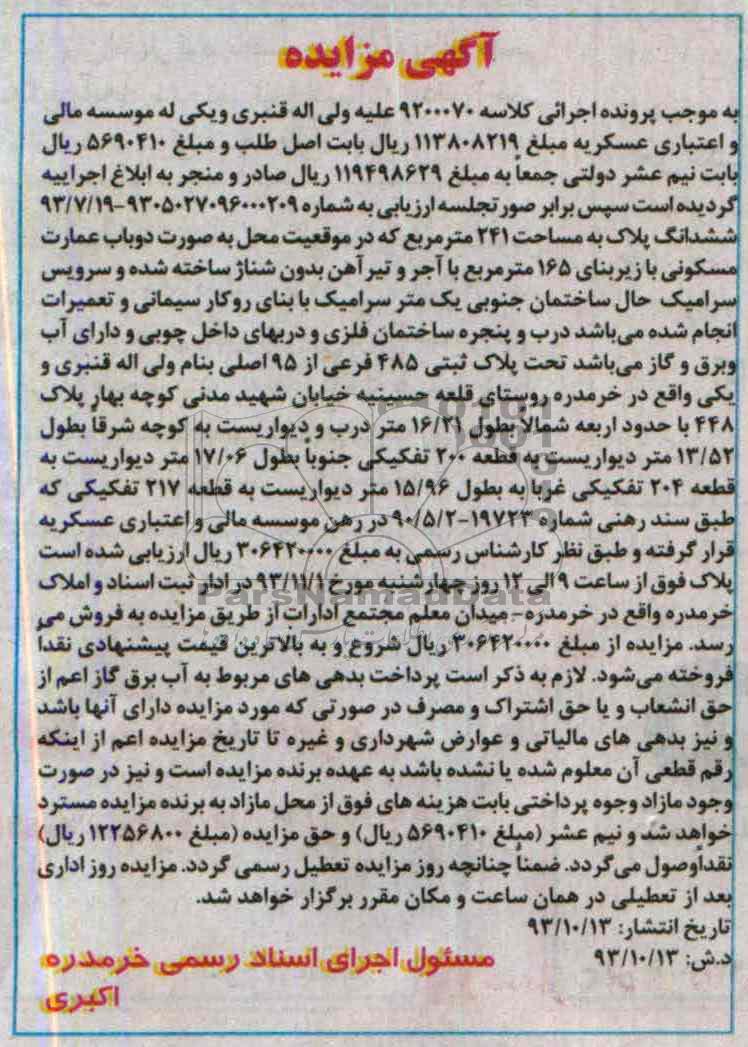 آگهی مزایده
به موجب پرونده اجرائی کلاسه ۹۲۰۰۰۷۰ علیه ولی اله قنبری ویکی له موسسه مالی
و اعتباری عسکریه مبلغ ۱۱۳۸۰۸۲۱۹ ریال بابت اصل طلب و مبلغ ۵۶۹۰۴۱۰ ریال
بابت نیم عشر دولتی جمعاً به مبلغ ۱۱۹۴۹۸۶۲۹ ریال صادر و منجر به ابلاغ اجراییه
گردیده است سپس برابر صورتجلسه ارزیابی به شماره ۹۳۰۵۰۲۷۰۹۶۰۰۰۲۰۹-۹۳/۷/۱۹
ششدانگ پلاک به مساحت ۲۴۱ مترمربع که در موقعیت محل به صورت دوباب عمارت
مسکونی با زیربنای ۱۶۵ مترمربع با آجر و تیرآهن بدون شناژ ساخته شده و سرویس
سرامیک حال ساختمان جنوبی یک متر سرامیک با بنای روکار سیمانی و تعمیرات
انجام شده می‌باشد درب و پنجره ساختمان فلزی و دربهای داخل چوبی و دارای آب
وبرق و گاز می‌باشد تحت پلاک ثبتی ۴۸۵ فرعی از ۹۵ اصلی بنام ولی اله قنبری و
یکی واقع در خرمدره روستای قلعه حسینیه خیابان شهید مدنی کوچه بهار پلاک
۴۴۸ با حدود اربعه شمالاً بطول ۱۶/۲۱ متر درب و دیواریست به کوچه شرقاً بطول
۱۳/۵۲ متر دیواریست به قطعه ۲۰۰ تفکیکی جنوباً بطول ۱۷/۰۶ متر دیواریست به
قطعه ۲۰۴ تفکیکی غربا به بطول ۱۵/۹۶ متر دیواریست به قطعه ۲۱۷ تفکیکی که
طبق سند رهنی شماره ۱۹۷۲۳-۹۰/۵/۲ در رهن موسسه مالی و اعتباری عسکریه
قرار گرفته و طبق نظر کارشناس رسمی به مبلغ ۳۰۶۴۲۰۰۰۰ ریال ارزیابی شده است
پلاک فوق از ساعت ۹ الی ۱۲ روز چهارشنبه مورخ ۹۳/۱۱/۱ در ادار ثبت اسناد و املاک
خرمدره واقع در خرمدره- میدان معلم مجتمع ادارات از طریق مزایده به فروش می
رسد. مزایده از مبلغ ۳۰۶۴۲۰۰۰۰ ریال شروع و به بالاترین قیمت پیشنهادی نقداً
فروخته می‌شود. لازم به ذکر است پرداخت بدهی های مربوط به آب برق گاز اعم از
حق انشعاب و یا حق اشتراک و مصرف در صورتی که مورد مزایده دارای آنها باشد
و نیز بدهی های مالیاتی و عوارض شهرداری و غیره تا تاریخ مزایده اعم از اینکه
رقم قطعی آن معلوم شده یا نشده باشد به عهده برنده مزایده است و نیز در صورت
وجود مازاد وجوه پرداختی بابت هزینه های فوق از محل مازاد به برنده مزایده مسترد
خواهد شد و نیم عشر (مبلغ ۵۶۹۰۴۱۰ ریال) و حق مزایده (مبلغ ۱۲۲۵۶۸۰۰ ریال)
نقداًوصول می‌گردد. ضمناً چنانچه روز مزایده تعطیل رسمی گردد. مزایده روز اداری
بعد از تعطیلی در همان ساعت و مکان مقرر برگزار خواهد شد.
تاریخ انتشار: ۹۳/۱۰/۱۳
د.ش: ۹۳/۱۰/۱۳
مسئول اجرای اسناد رسمی خرمدره
اکبری
ParsNamadData